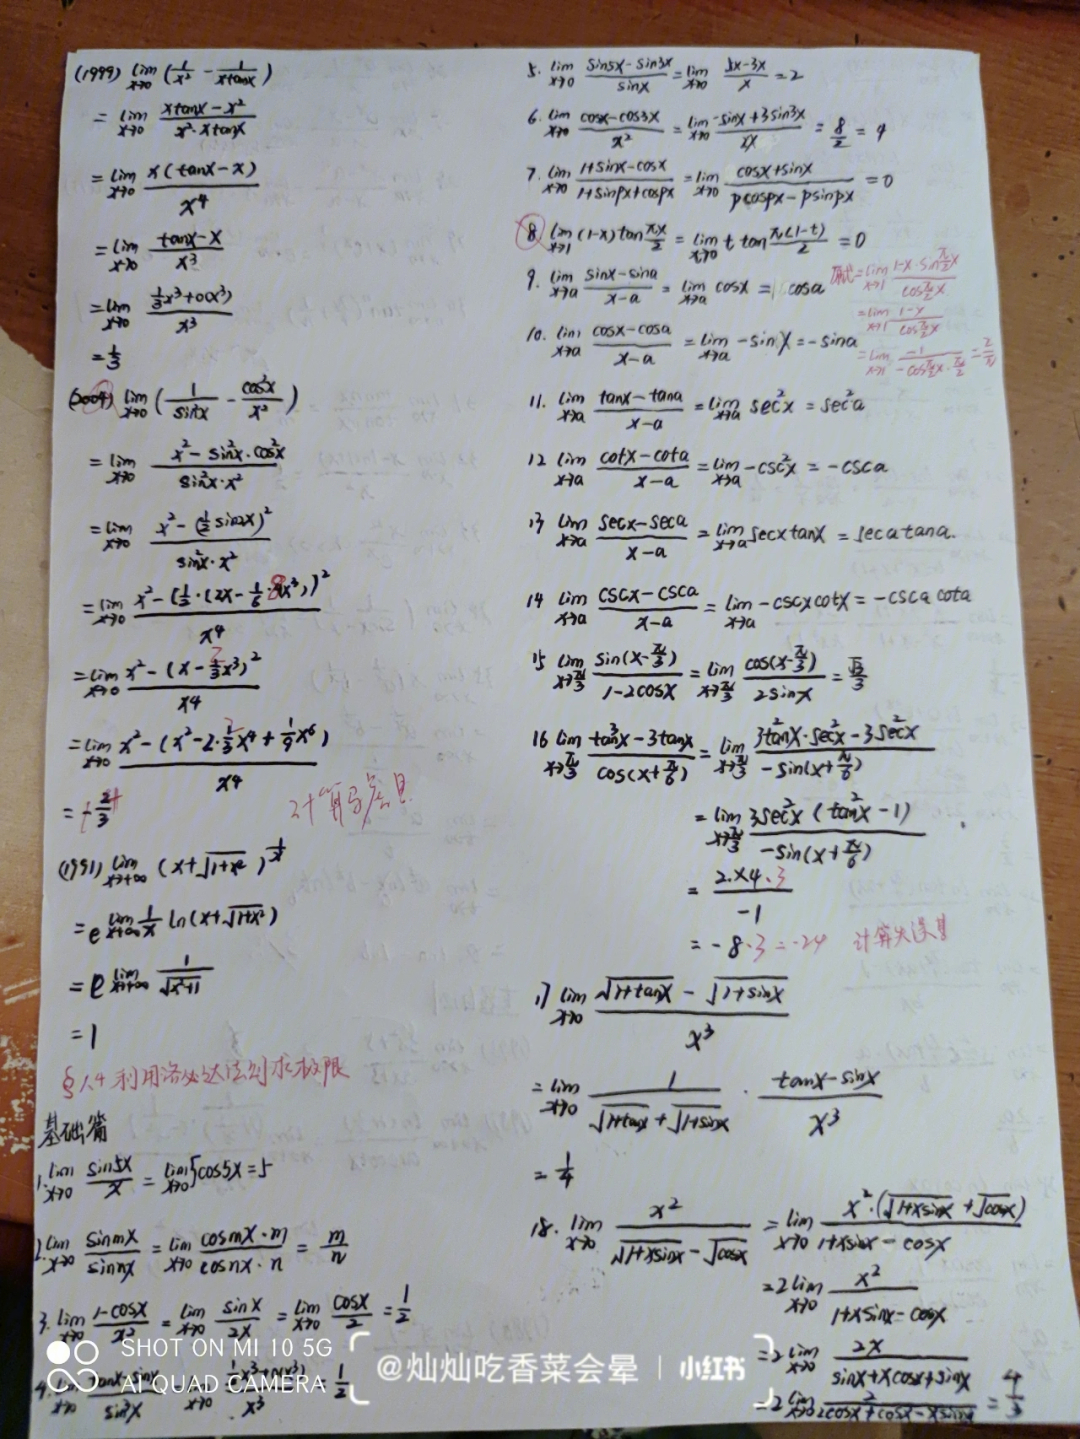 (1999) lim x→0 (1/x² - 1/(xtanx))
= lim x→0 (xtanx - x²)/(x²·xtanx)
= lim x→0 x(tanx - x)/x⁴
= lim x→0 (tanx - x)/x³
= lim x→0 (1/3x³+o(x³))/x³
= 1/3
(2004) lim x→0 (1/sin²x - cos²x/x²)
= lim x→0 (x² - sin²x·cos²x)/(sin²x·x²)
= lim x→0 (x² - (1/2 sin2x)²)/(sin²x·x²)
= lim x→0 (x² - (1/2·(2x - 1/6·8x³))²)/x⁴
= lim x→0 (x² - (x - 2/3x³)²)/x⁴
= lim x→0 (x² - (x² - 2·2/3x⁴ + 1/9x⁶))/x⁴
= 4/3
(1991) lim x→+∞ (x+√(1+x²))^(1/x)
= e lim x→+∞ 1/x ln(x+√(1+x²))
= e lim x→+∞ 1/√(x²+1)
= 1
§1.4 利用洛必达法则求极限
基础篇
1. lim x→0 sin5x/x = lim x→0 5cos5x = 5
2. lim x→0 sinmx/sinnx = lim x→0 (cosmx·m)/(cosnx·n) = m/n
3. lim x→0 (1-cosx)/x² = lim x→0 sinx/2x = lim x→0 cosx/2 = 1/2
4. lim x→0 (tanx-sinx)/sin³x lim x→0 (1/2x³+o(x³))/x³ = 1/2
5. lim x→0 (sin5x-sin3x)/sinx = lim x→0 (5x-3x)/x = 2
6. lim x→0 (cosx-cos3x)/x² = lim x→0 (-sinx+3sin3x)/2x = 8/2 = 4
7. lim x→0 (1+sinx-cosx)/(1+sinpx+cospx) = lim x→0 (cosx+sinx)/(pcospx-psinpx) = 0
8. lim x→1 (1-x)tan πx/2 = lim x→0 t tan π(1-t)/2 = 0
原式= lim x→1 (1-x·sin π/2 x)/(cos π/2 x)
= lim x→1 (1-x)/(cos π/2 x)
= lim x→1 -1/(-cos π/2 x·π/2) = 2/π
9. lim x→a (sinx-sina)/(x-a) = lim x→a cosx = cosa
10. lim x→a (cosx-cosa)/(x-a) = lim x→a -sinx = -sina
11. lim x→a (tanx-tana)/(x-a) = lim x→a sec²x = sec²a
12 lim x→a (cotx-cota)/(x-a) = lim x→a -csc²x = -csca
13 lim x→a (secx-seca)/(x-a) = lim x→a secxtanx = secatana.
14 lim x→a (cscx-csca)/(x-a) = lim x→a -cscxcotx = -cscacota
15 lim x→π/3 sin(x-π/3)/(1-2cosx) = lim x→π/3 cos(x-π/3)/2sinx = √3/3
16 lim x→π/3 (tan³x-3tanx)/cos(x+π/6) = lim x→π/3 (3tan²x·sec²x-3sec²x)/-sin(x+π/6)
= lim x→π/3 3sec²x(tan²x-1)/-sin(x+π/6)
= 2×4·3/-1
= -8·3 = -24 计算失误
17 lim x→0 (√(1+tanx) - √(1+sinx))/x³
= lim x→0 1/(√(1+tanx)+√(1+sinx)) · (tanx-sinx)/x³
= 1/4
18. lim x→0 x²/(√(1+xsinx)-√cosx) = lim x→0 x²·(√(1+xsinx)+√cosx)/(1+xsinx-cosx)
= 2 lim x→0 x²/(1+xsinx-cosx)
= 2 lim x→0 2x/(sinx+xcosx+sinx)
= 2 lim x→0 2/(2cosx+cosx-xsinx) = 4/3
SHOT ON MI 10 5G
AI QUAD CAMERA
@灿灿吃香菜会晕 | 小红书